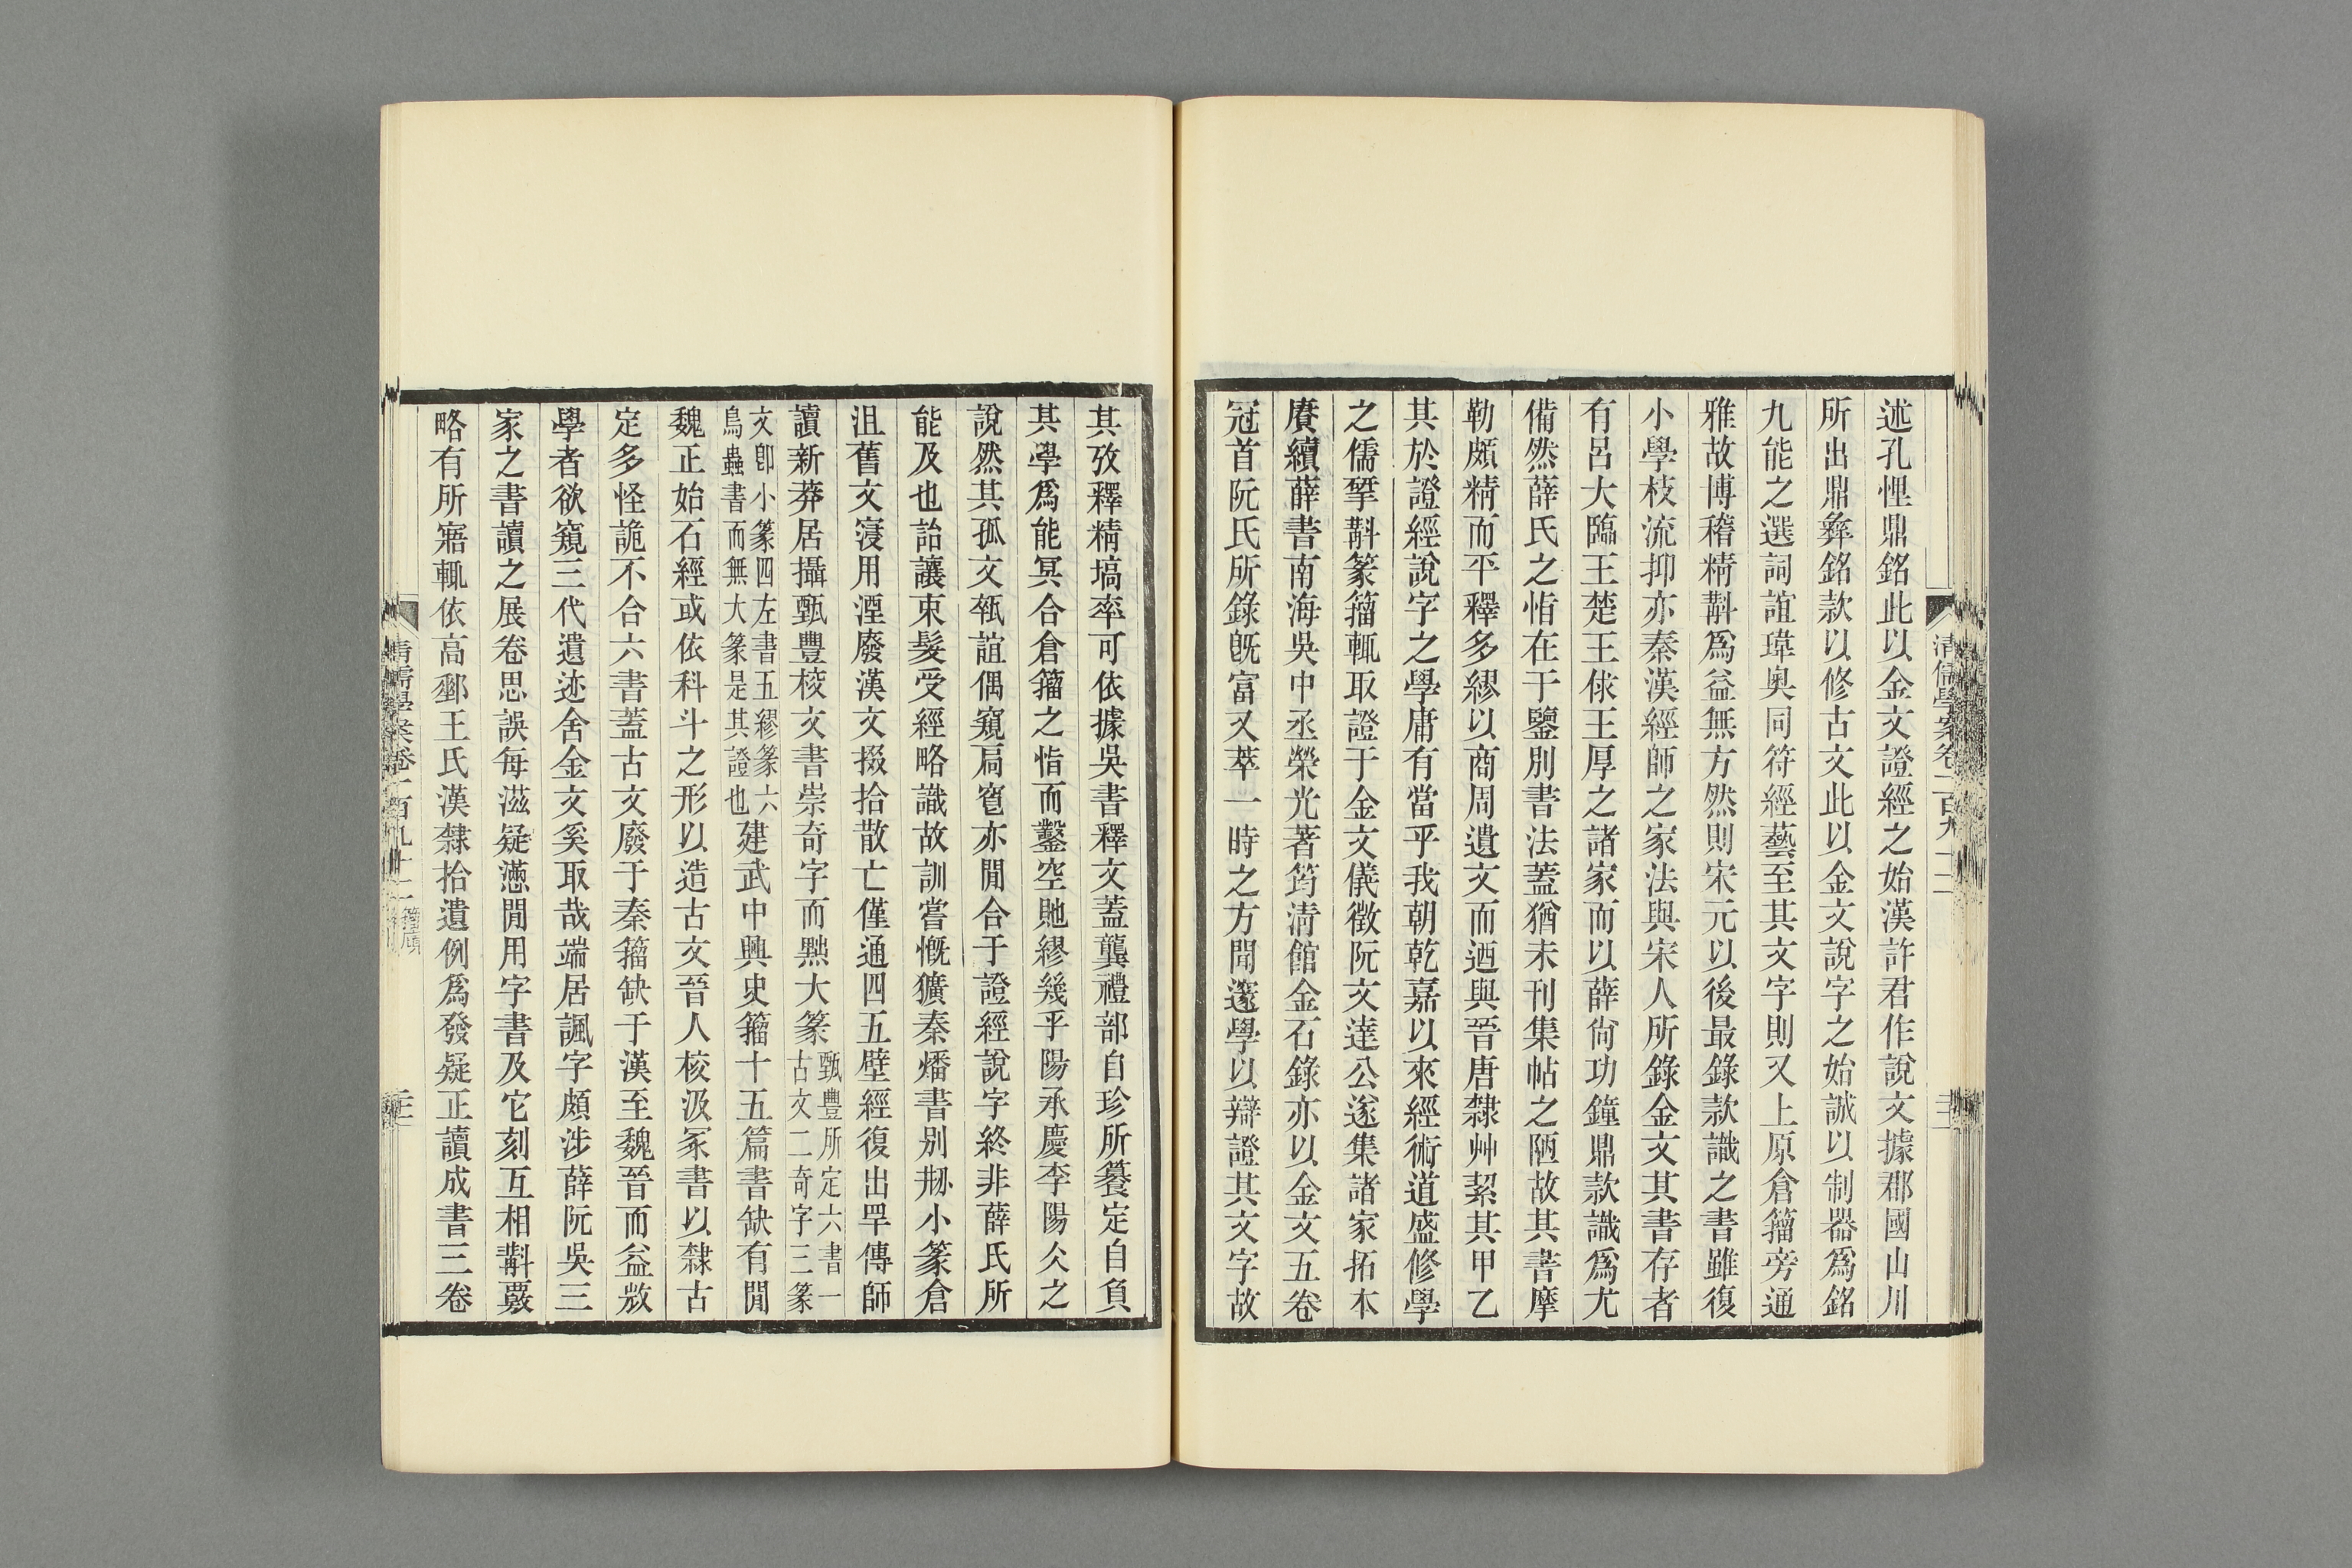 述孔悝鼎銘此以金文證經之始漢許君作說文據郡國山川
所出鼎彝銘款以修古文此以金文說字之始誠以制器爲銘
九能之選詞誼瑋奥同符經藝至其文字則又上原倉籀旁通
雅故博稽精斠爲益無方然則宋元以後最錄款識之書雖復
小學枝流抑亦秦漢經師之家法與宋人所錄金文其書存者
有呂大臨王楚王俅王厚之諸家而以薛尙功鐘鼎款識爲尤
備然薛氏之恉在于鑒別書法蓋猶未刊集帖之陋故其書摩
勒頗精而平釋多繆以商周遺文而迺與晉唐隸艸絜其甲乙
其於證經說字之學庸有當乎我朝乾嘉以來經術道盛修學
之儒揅斠篆籀輒取證于金文儀徵阮文達公遂集諸家拓本
賡續薛書南海吳中丞榮光著筠淸館金石錄亦以金文五卷
冠首阮氏所錄旣富又萃一時之方聞邃學以辯證其文字故
清儒學案卷一百九十二
其攷釋精塙率可依據吳書釋文蓋龔禮部自珍所纂定自負
其學爲能冥合倉籀之恉而鑿空貤繆幾乎陽承慶李陽仌之
說然其孤文瓻誼偶窺扃窔亦閒合于證經說字終非薛氏所
能及也詒讓束髮受經略識故訓嘗慨獷秦燔書別刱小篆倉
沮舊文寖用湮廢漢文掇拾散亡僅通四五壁經復出罕傳師
讀新莽居攝甄豐校文書崇奇字而黜大篆甄豐所定六書一
古文二奇字三篆
文卽小篆四左書五繆篆六
鳥蟲書而無大篆是其證也建武中興史籀十五篇書缺有閒
魏正始石經或依科斗之形以造古文晉人校汲冢書以隸古
定多怪詭不合六書蓋古文廢于秦籀缺于漢至魏晉而益㪚
學者欲窺三代遺迹舍金文奚取哉端居諷字頗涉薛阮吳三
家之書讀之展卷思誤每滋疑懣閒用字書及它刻互相斠覈
略有所寤輒依高郵王氏漢隸拾遺例爲發疑正讀成書三卷
清儒學案卷一百九十二 籀廎